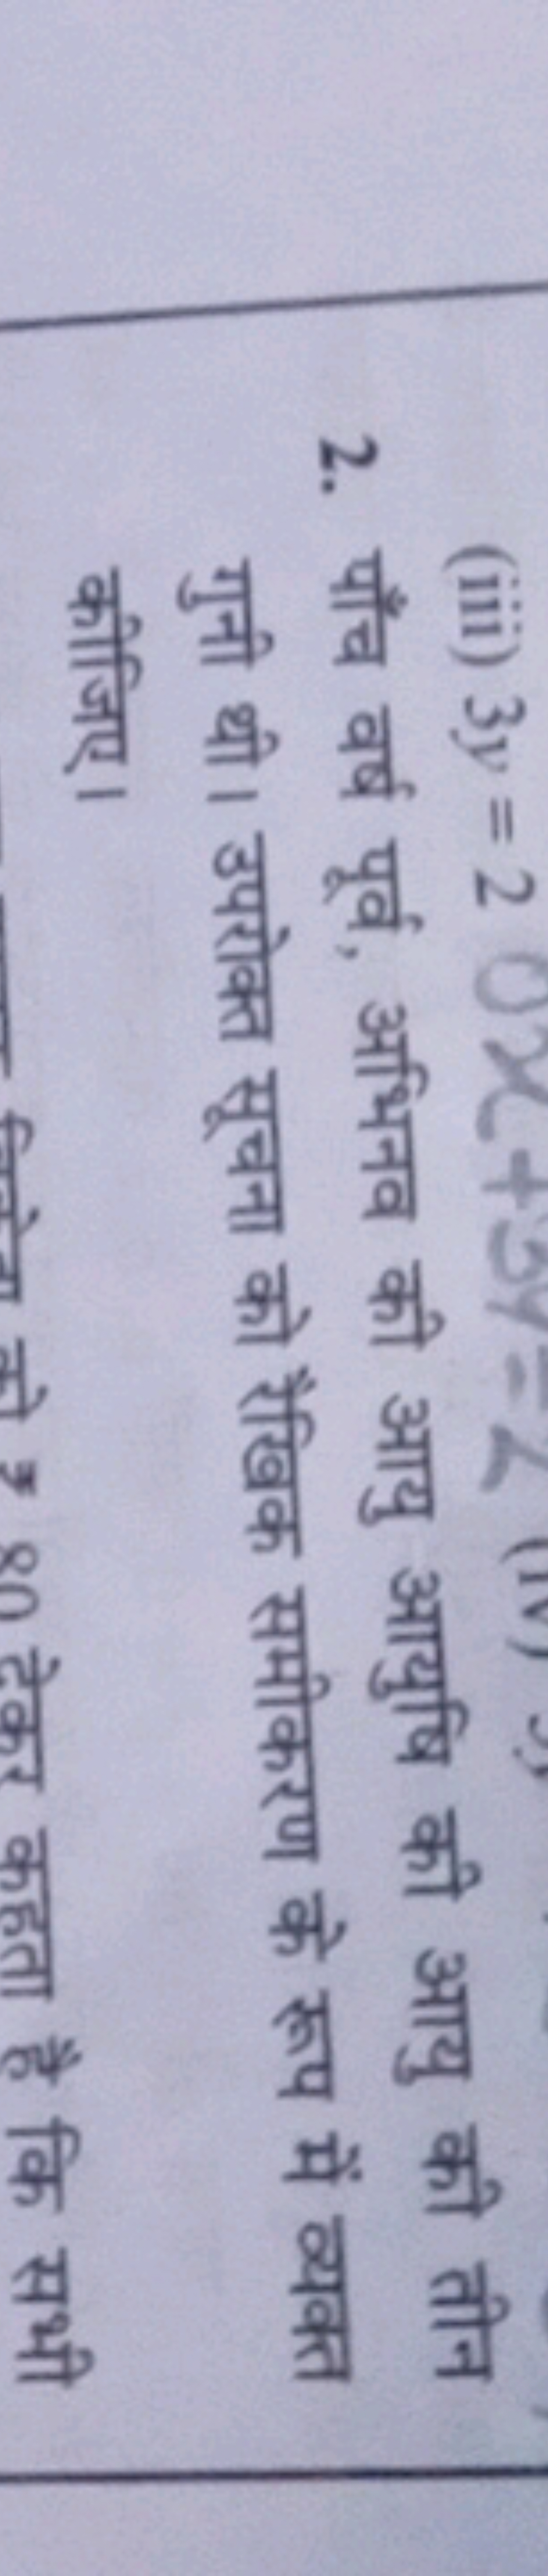 (iii) 3y = 2 0x+3y=2 (iv)
2. पाँच वर्ष पूर्व, अभिनव की आयु आयुषि की आयु की तीन
गुनी थी। उपरोक्त सूचना को रैखिक समीकरण के रूप में व्यक्त
कीजिए।
को ₹ 80 देकर कहता है कि सभी